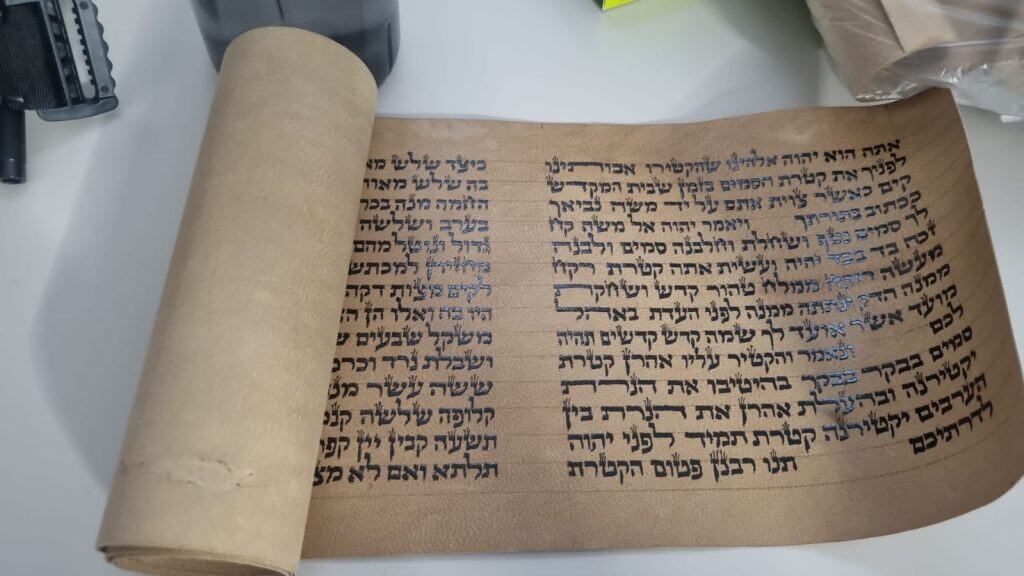 אתה הוא יהוה אלהינו שהקטירו אבותינו
לפניך את קטרת הסמים בזמן שבית המקדש
קים כאשר צוית אתם על יד משה נביאך
ככתוב בתורתך ויאמר יהוה אל משה קח
לך סמים נטף ושחלת וחלבנה סמים ולבנה
זכה בד בבד יהיה ועשית אתה קטרת רקח
מעשה רוקח ממלח טהור קדש ושחקת
ממנה הדק ונתתה ממנה לפני העדת באהל
מועד אשר אועד לך שמה קדש קדשים תהיה
לכם ונאמר והקטיר עליו אהרן קטרת
סמים בבקר בבקר בהיטיבו את הנרת
יקטירנה ובהעלת אהרן את הנרת בין
הערבים יקטירנה קטרת תמיד לפני יהוה
לדרתיכם תנו רבנן פטום הקטרת
כיצד שלש
בה שלש
החמה מנה
בערב ושלשה
גדול נוטל מהם
מחזירן למכתש
לקים מצות דקה
היו בה ואלו הן
משקל שבעים
ושבלת נרד
ששה עשר
קלופה שלשה
תשעה קבין יין
תלתא ואם לא